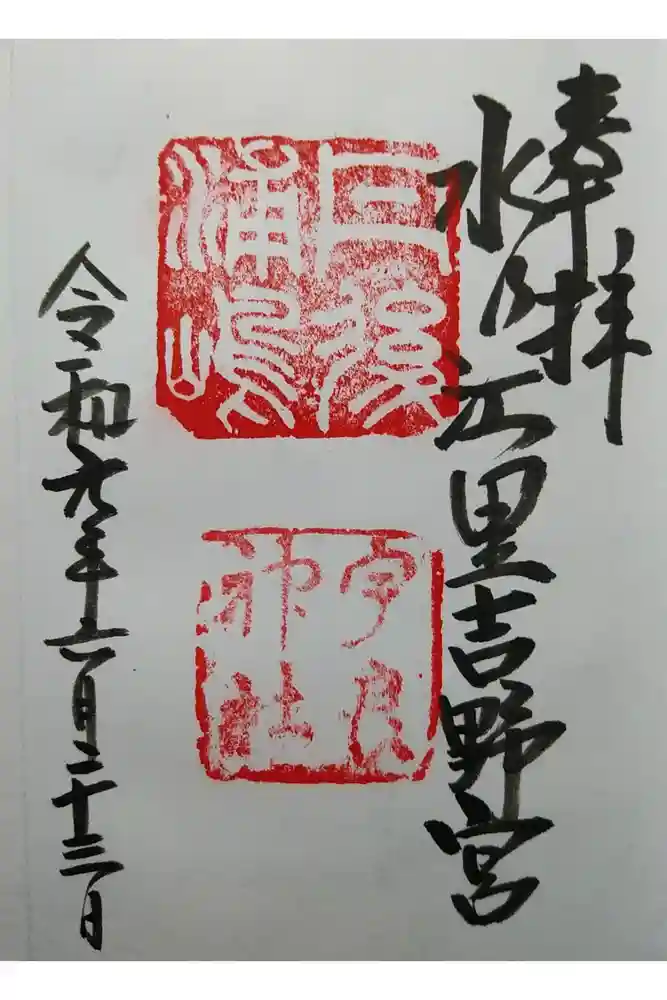 奉拝
水附江里吉野宮
丹後
浦嶋
宇良
神社
令和元年六月二十三日